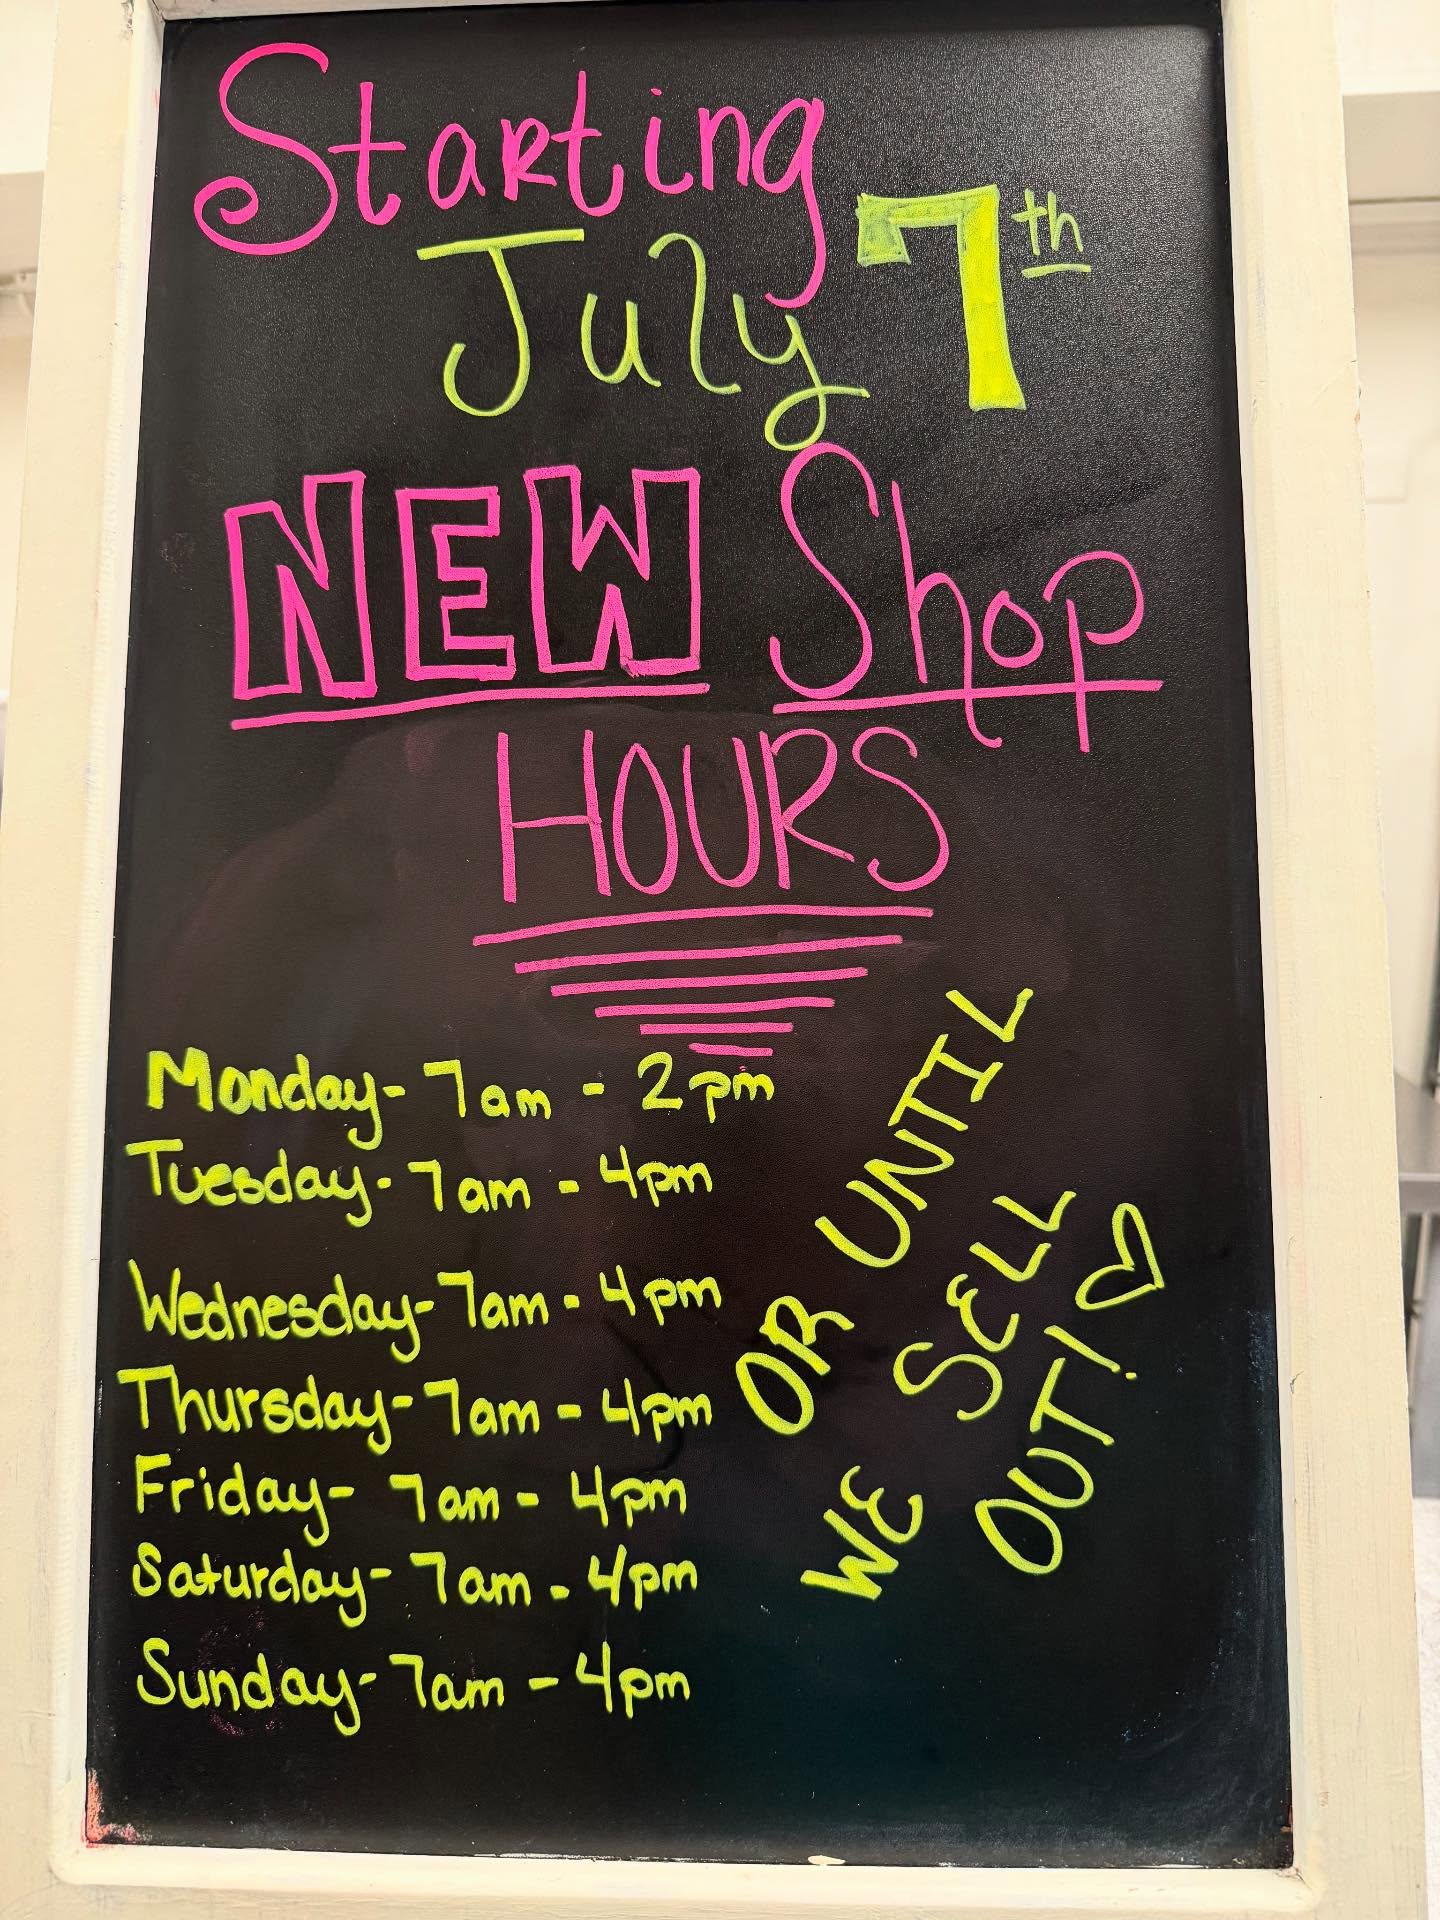 Starting
July 7th
NEW Shop
HOURS
Monday- 7am - 2pm
Tuesday- 7am - 4pm
Wednesday- 7am - 4pm
Thursday- 7am - 4pm
Friday- 7am - 4pm
Saturday- 7am - 4pm
Sunday- 7am - 4pm
OR UNTIL
WE SELL
OUT!